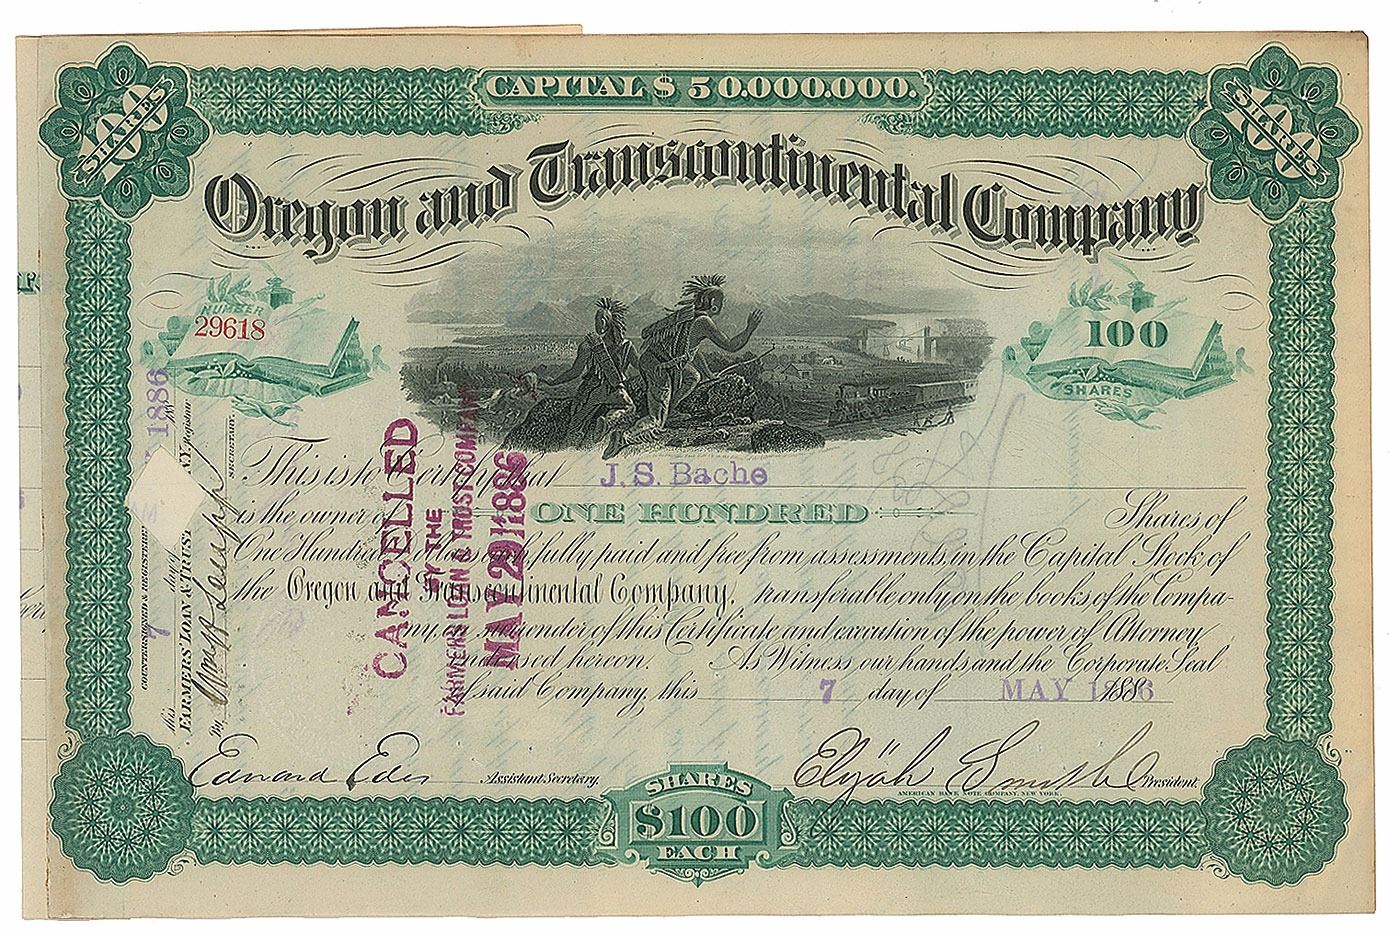 CAPITAL $50.000.000.
100 SHARES
100 SHARES
Oregon and Transcontinental Company
NUMBER
29618
100
SHARES
This is to Certify that J. S. Bache
is the owner of ONE HUNDRED Shares of
One Hundred fully paid and free from assessments, in the Capital Stock of
the Oregon and Transcontinental Company, transferable only on the books of the Compa-
ny, on surrender of this Certificate and execution of the power of Attorney
endorsed hereon. As Witness our hands and the Corporate Seal
of said Company, this 7 day of MAY 1886
CANCELLED
BY THE
FARMERS LOAN & TRUST COMPANY
MAY 29 1886
COUNTERSIGNED & REGISTERED
this 7 day of 1886
FARMERS' LOAN & TRUST N.Y. Registrar
By
SECRETARY.
Edward Assistant Secretary.
Elijah Smith President.
AMERICAN BANK NOTE COMPANY, NEW YORK.
SHARES
$100
EACH